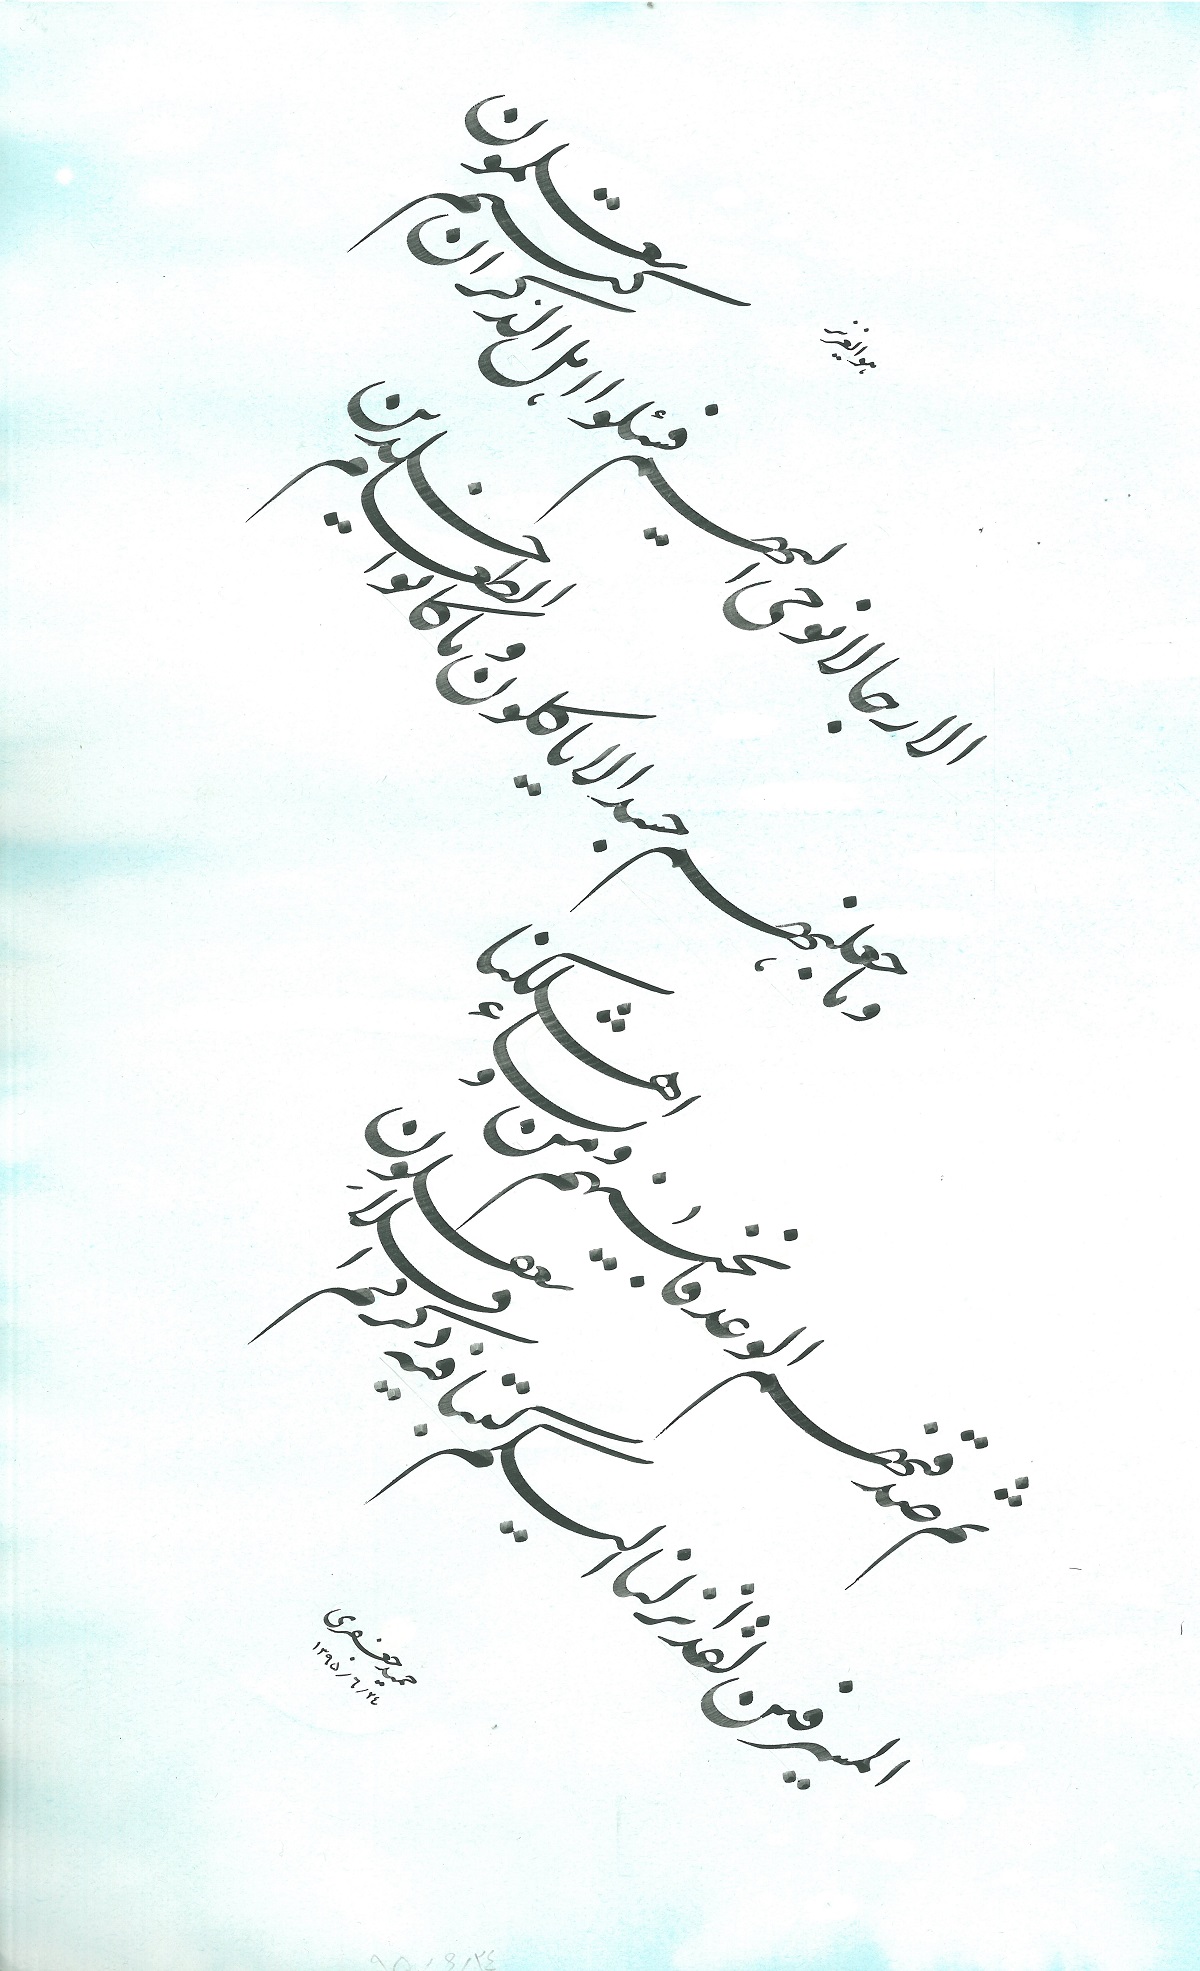 هو العزیز
الا رجالا نوحی الیهم فسئلوا اهل الذکر ان کنتم تعلمون
وما جعلنهم جسدا لا یاکلون الطعام وما کانوا خلدین
ثم صدقنهم الوعد فانجینهم ومن نشاء و اهلکنا
المسرفین لقد انزلنا الیکم کتبا فیه ذکرکم افلا تعقلون
حمید جعفری
۱۳۹۵/۶/۲۴